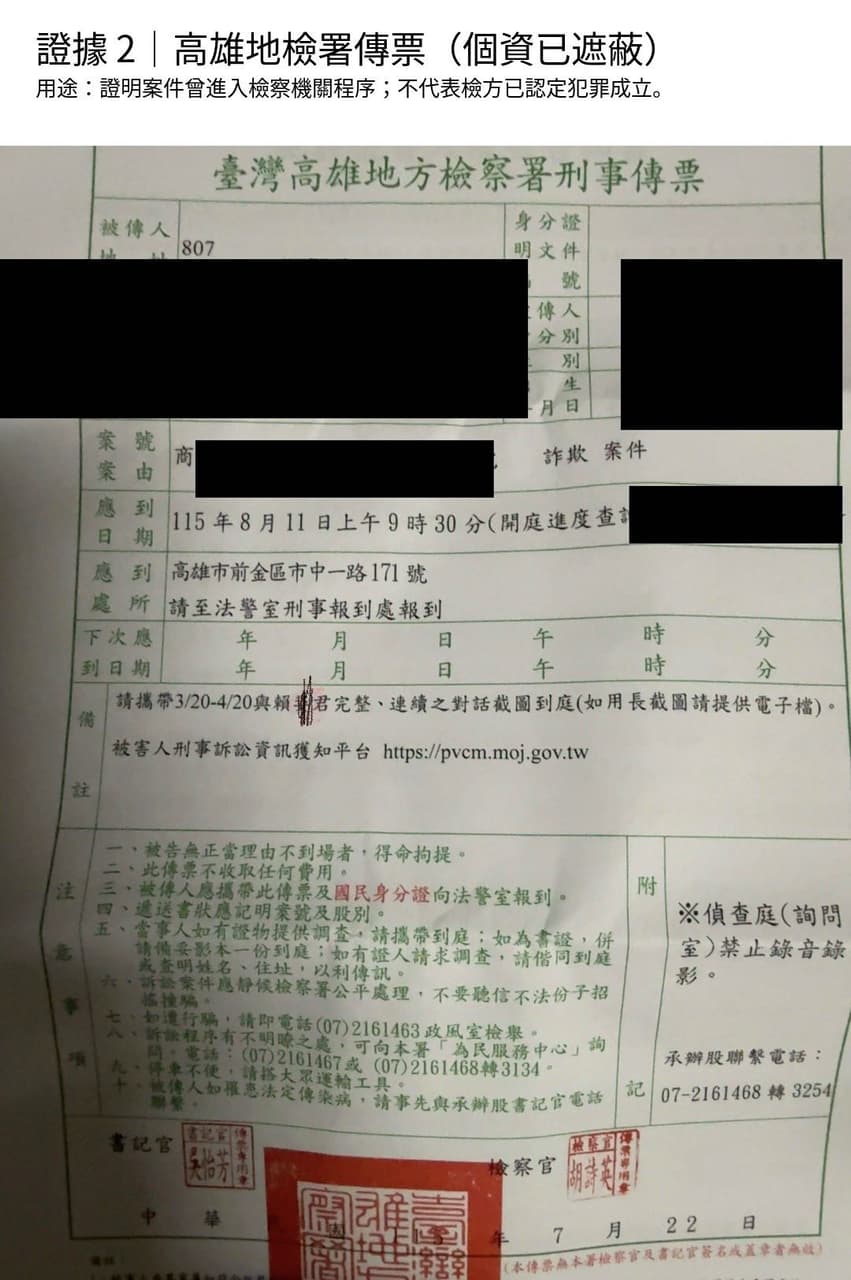 證據 2｜高雄地檢署傳票（個資已遮蔽）
用途：證明案件曾進入檢察機關程序；不代表檢方已認定犯罪成立。
臺灣高雄地方檢察署刑事傳票
被傳人
807
身分證
明文件
號
傳人
分別
別
生
月日
案號
案由
商
詐欺 案件
應到
日期
115 年 8 月 11 日上午 9 時 30 分(開庭進度查
應到
處所
高雄市前金區市中一路171 號
請至法警室刑事報到處報到
下次應
到日期
年 月 日 午 時 分
年 月 日 午 時 分
備註
請攜帶3/20-4/20與賴 君完整、連續之對話截圖到庭(如用長截圖請提供電子檔)。
被害人刑事訴訟資訊獲知平台 https://pvcm.moj.gov.tw
注意事項
一、被告無正當理由不到場者，得命拘提。
二、此傳票不收取任何費用。
三、被傳人應攜帶此傳票及國民身分證向法警室報到。
四、遞送書狀應記明案號及股別。
五、當事人如有證物提供調查，請攜帶到庭；如為書證，併
請備妥影本一份到庭；如有證人請求調查，請偕同到庭
或查明姓名、住址，以利傳訊。
六、訴訟案件應靜候檢察署公平處理，不要聽信不法份子招
搖撞騙。
七、如遭行騙，請即電話(07)2161463 政風室檢舉。
八、訴訟程序有不明瞭之處，可向本署「為民服務中心」詢
問。電話：(07)2161467或 (07)2161468轉3134。
九、停車不便，請搭大眾運輸工具。
十、被傳人如罹患法定傳染病，請事先與承辦股書記官電話
聯繫。
附記
※偵查庭(詢問
室)禁止錄音錄
影。
承辦股聯繫電話：
07-2161468 轉 3254
書記官
書記官
吳怡芳
傳票專用章
檢察官
檢察官
胡詩英
傳票專用章
中 華 國 年 7 月 22 日
(本傳票無本署檢察官及書記官簽名或蓋章者無效)